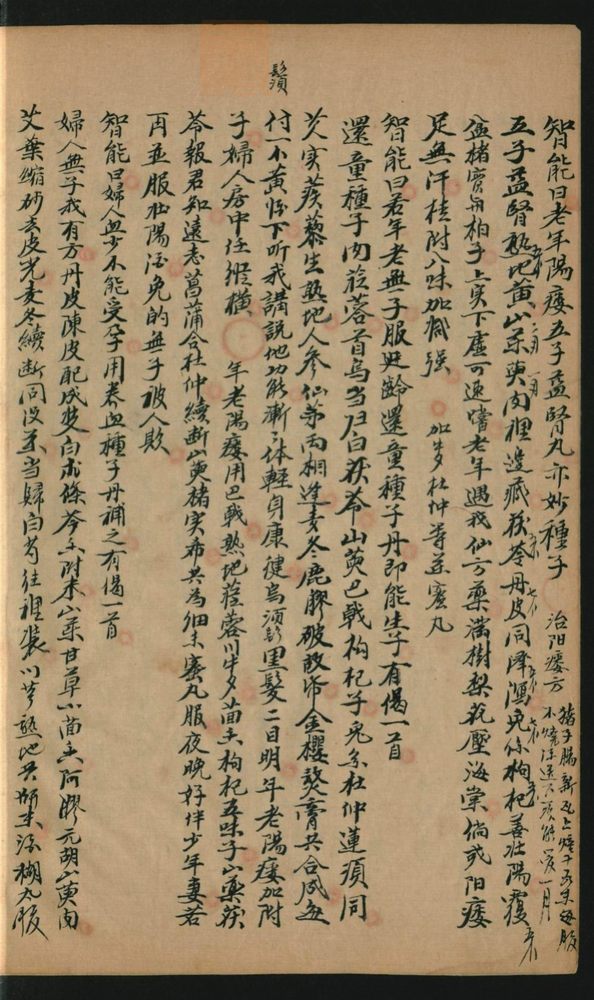 鬚
智能曰老年陽痿五子益腎丸亦妙種子 治陽痿方
五子益腎熟地黃山茱萸肉裡邊藏茯苓丹皮同澤瀉兔絲枸杞善壯陽覆
盆楮實角柏子上實下虛可速嚐老年遇我仙方藥滿樹梨花壓海棠倘或阳痿
足無汗桂附八味加減强 加牛夕杜仲等並蜜丸
智能曰若年老無子服延齡還童種子丹即能生子有偈一首
還童種子肉蓯蓉首烏当归白茯苓山萸巴戟枸杞子兔糸杜仲蓮須同
芡实蒺藜生熟地人參仙茅两相逢麦冬鹿膠破故帋金櫻熬膏共合成每
付一不黃
下听我講說他功能漸漸体輕身康健烏須黑髮二目明年老陽痿加附
子婦人房中任縱橫 年老陽痿用巴戟熟地蓯蓉川牛夕茴香枸杞五味子山藥茯
苓報君知遠志菖蒲合杜仲續断山萸楮实希共為細末蜜丸服夜晚好伴少年妻若
再並服壯陽酒免的無子被人欺
智能曰婦人無少不能受孕用养血種子丹補之有偈一首
婦人無子我有方丹皮陳皮配成双白朮條芩香附米山藥甘草小茴香阿膠元胡山萸肉
艾葉縮砂去皮光麦冬續断同没药当歸白芍往裡裝川芎熟地共為末酒糊丸服